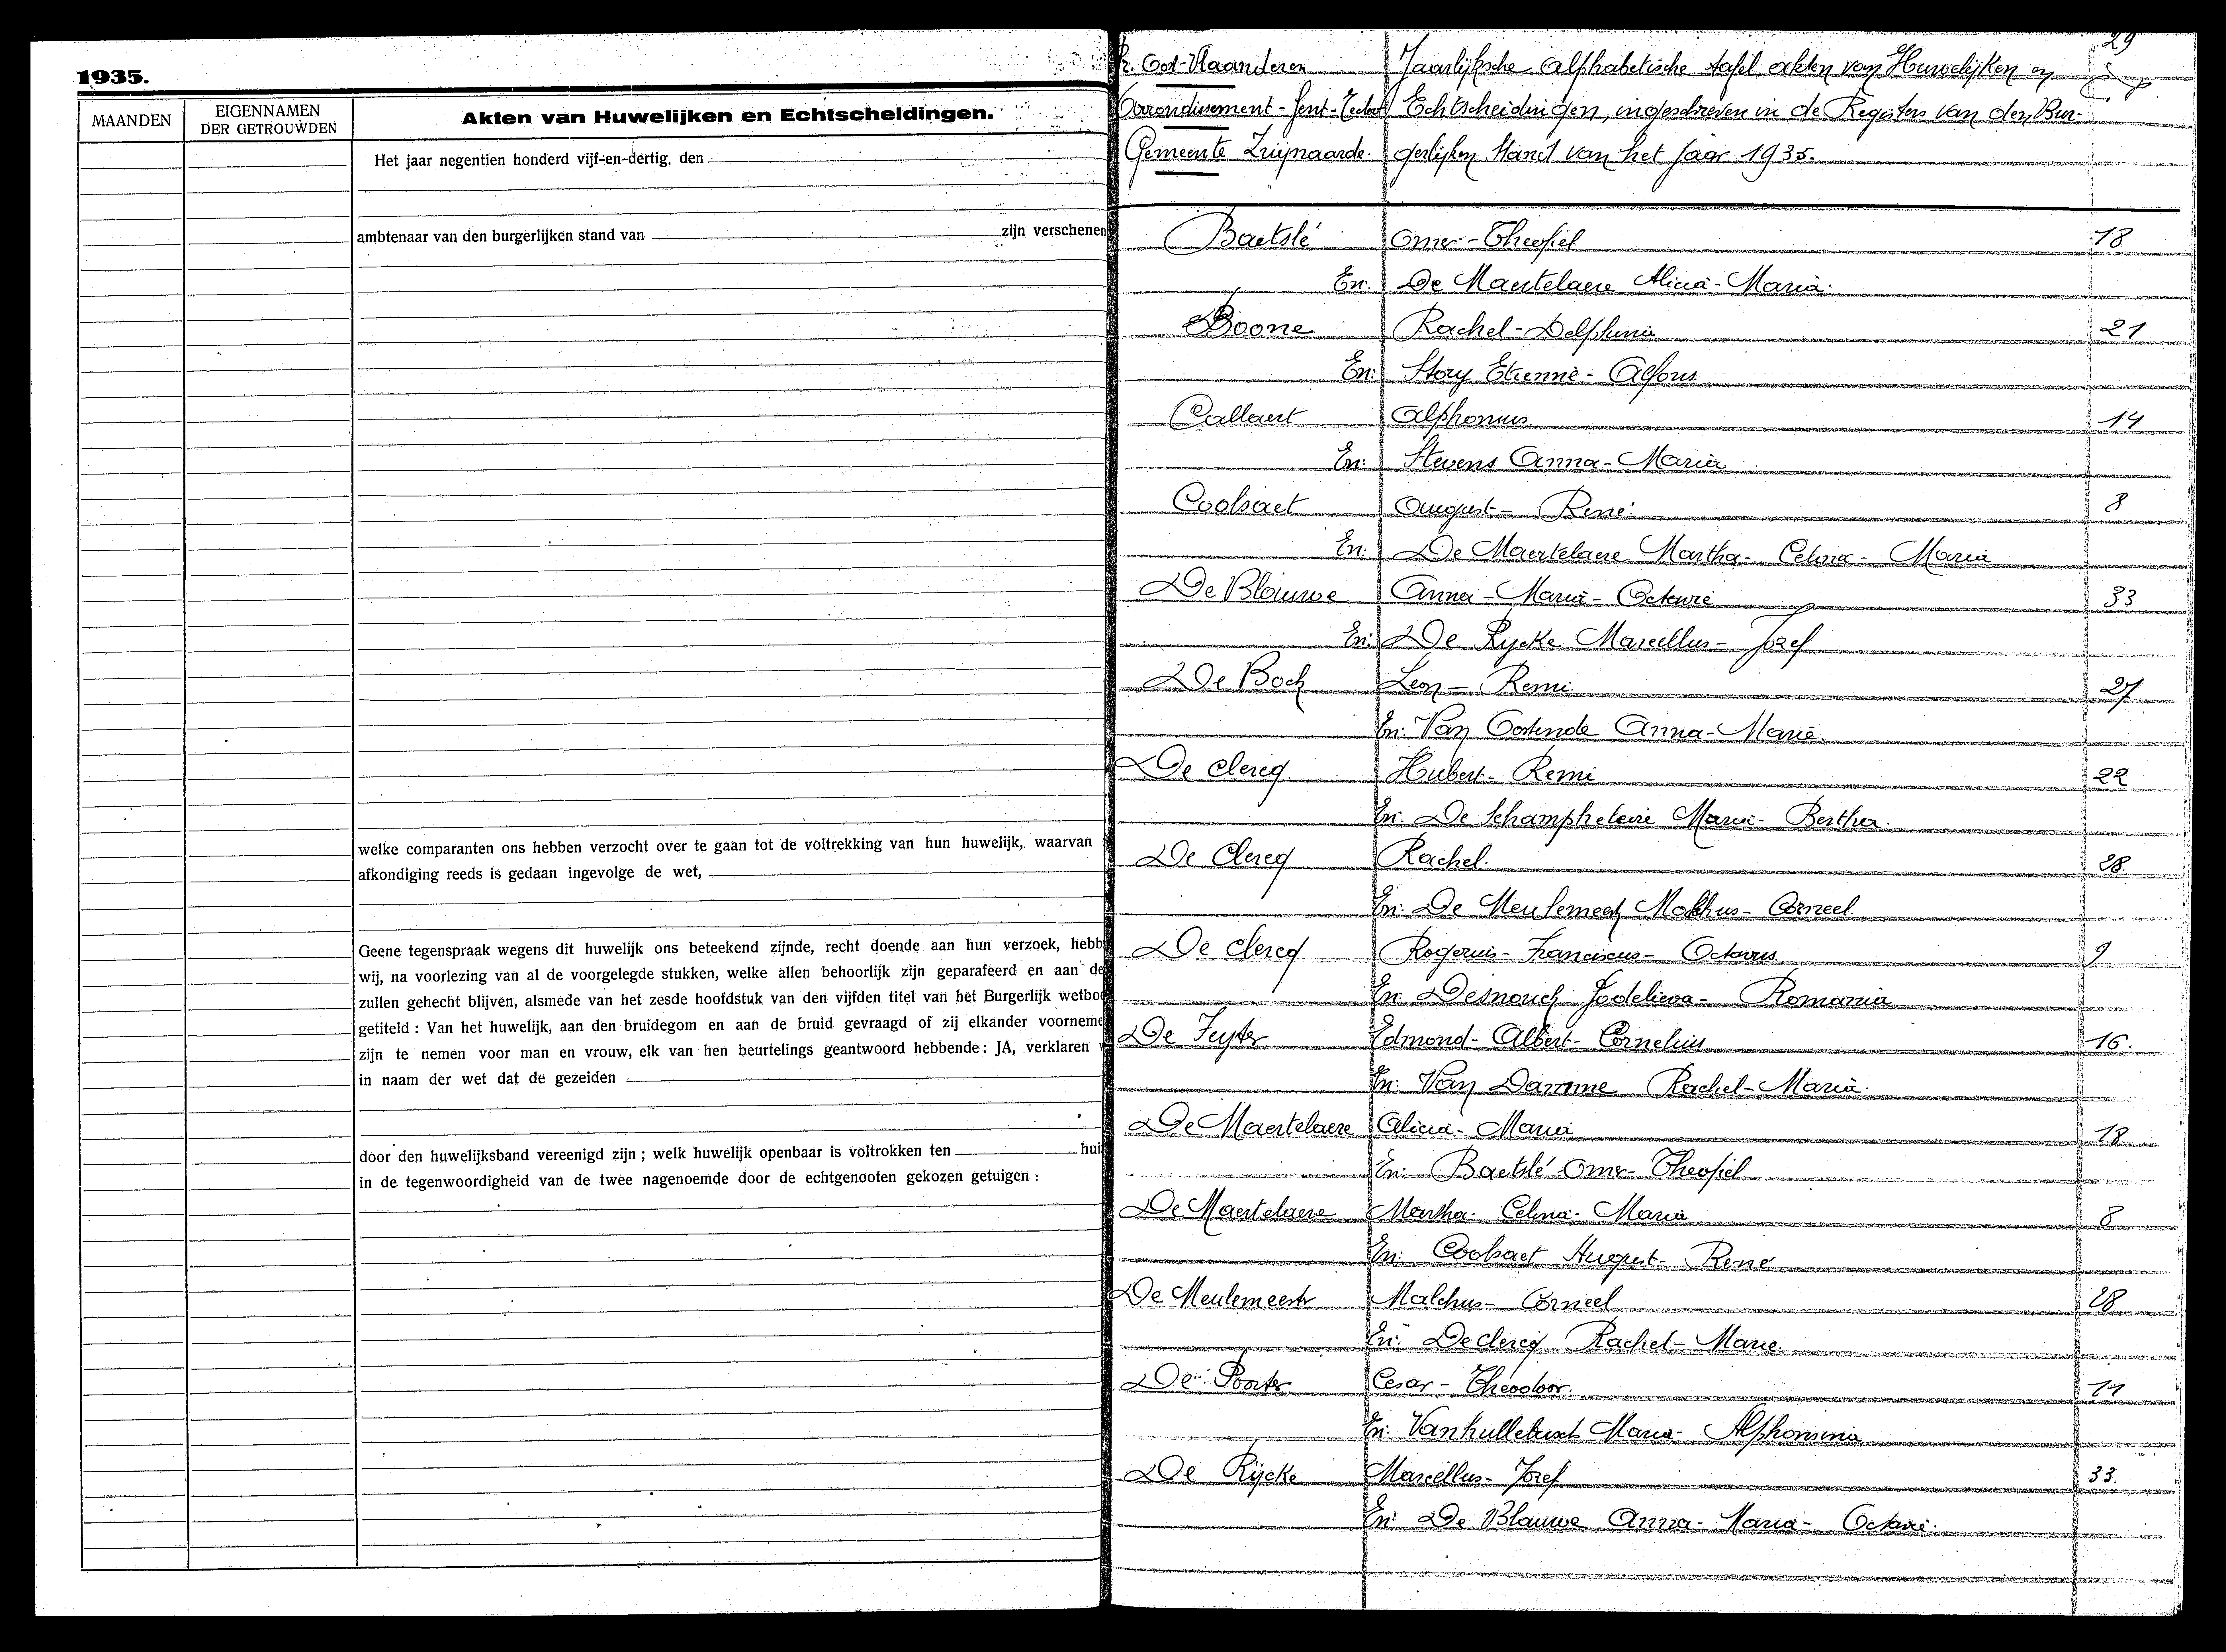 1935.
MAANDEN
EIGENNAMEN
DER GETROUWDEN
Akten van Huwelijken en Echtscheidingen.
Het jaar negentien honderd vijf-en-dertig, den
ambtenaar van den burgerlijken stand van zijn verschenen
welke comparanten ons hebben verzocht over te gaan tot de voltrekking van hun huwelijk, waarvan
afkondiging reeds is gedaan ingevolge de wet,
Geene tegenspraak wegens dit huwelijk ons beteekend zijnde, recht doende aan hun verzoek, hebb
wij, na voorlezing van al de voorgelegde stukken, welke allen behoorlijk zijn geparafeerd en aan de
zullen gehecht blijven, alsmede van het zesde hoofdstuk van den vijfden titel van het Burgerlijk wetbo
getiteld : Van het huwelijk, aan den bruidegom en aan de bruid gevraagd of zij elkander voorneme
zijn te nemen voor man en vrouw, elk van hen beurtelings geantwoord hebbende: JA, verklaren
in naam der wet dat de gezeiden
door den huwelijksband vereenigd zijn ; welk huwelijk openbaar is voltrokken ten hui
in de tegenwoordigheid van de twee nagenoemde door de echtgenooten gekozen getuigen :
29
Oost-Vlaanderen Jaarlijksche alphabetische tafel akten van Huwelijken en
Arrondissement - Gent-Eecloo Echtscheidingen, ingeschreven in de Registers van den Bur-
Gemeente Zwijnaarde. gerlijken Stand van het jaar 1935.
Baetslé Omer-Theofiel 18
En: De Maertelaere Alicia-Maria.
Boone Rachel-Delphina 21
En: Story Etienne - Alfons
Callaert Alphonsus 14
En: Stevens Anna-Maria
Coolsaet August - René 8
En: De Maertelaere Martha - Celina - Maria
De Blauwe Anna-Maria-Octavie 33
En: De Rycke Marcellus - Jozef
De Bock Leon - Remi 27
En: Van Oostende Anna-Maria.
De Clercq Hubert - Remi 22
En: De Schampheleire Maria - Bertha.
De Clercq Rachel. 28.
En: De Meulemeester Malchus - Corneel.
De Clercq Rogerius - Franciscus - Octavus 9
En: Godelieva - Romania
De Feyter Edmond - Albert - Cornelius 16.
En: Van Damme Rachel-Maria.
De Maertelaere Alicia - Maria 18
En: Baetslé Omer-Theofiel
De Maertelaere Martha - Celina - Maria 8
En: Coolsaet August - René
De Meulemeester Malchus - Corneel 28
En: De Clercq Rachel - Marie
De Poorter Cesar - Theodoor. 11
En: Vanhullebusch Maria - Alphonsina
De Rijcke Marcellus - Jozef 33.
En: De Blauwe Anna - Maria - Octavie.